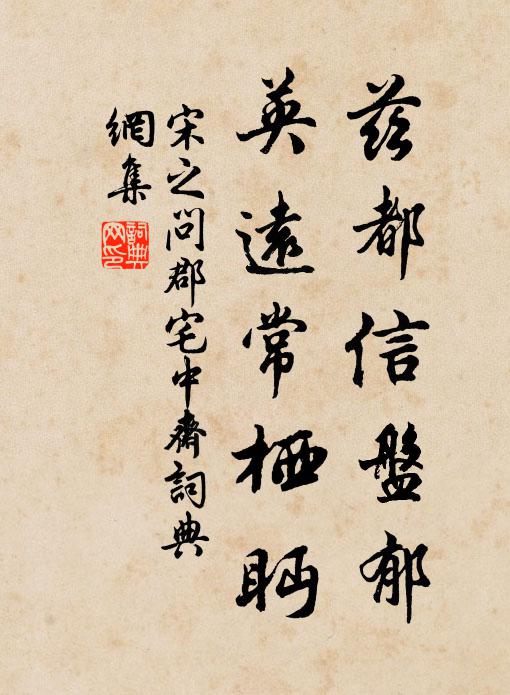 茲都信盤郁
英遠常栖眄
宋之问郡宅中齋詞典
網集
詞典網印